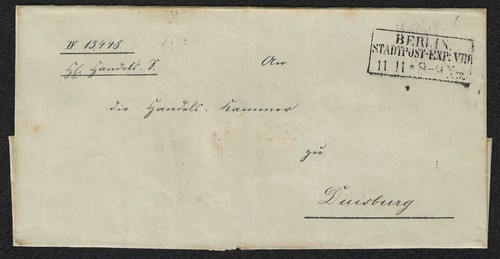 W 13448
Handels. S.
An
die Handels-Kammer
zu
Duisburg
BERLIN.
STADTPOST-EXP: VIII
11 11 * 8-9